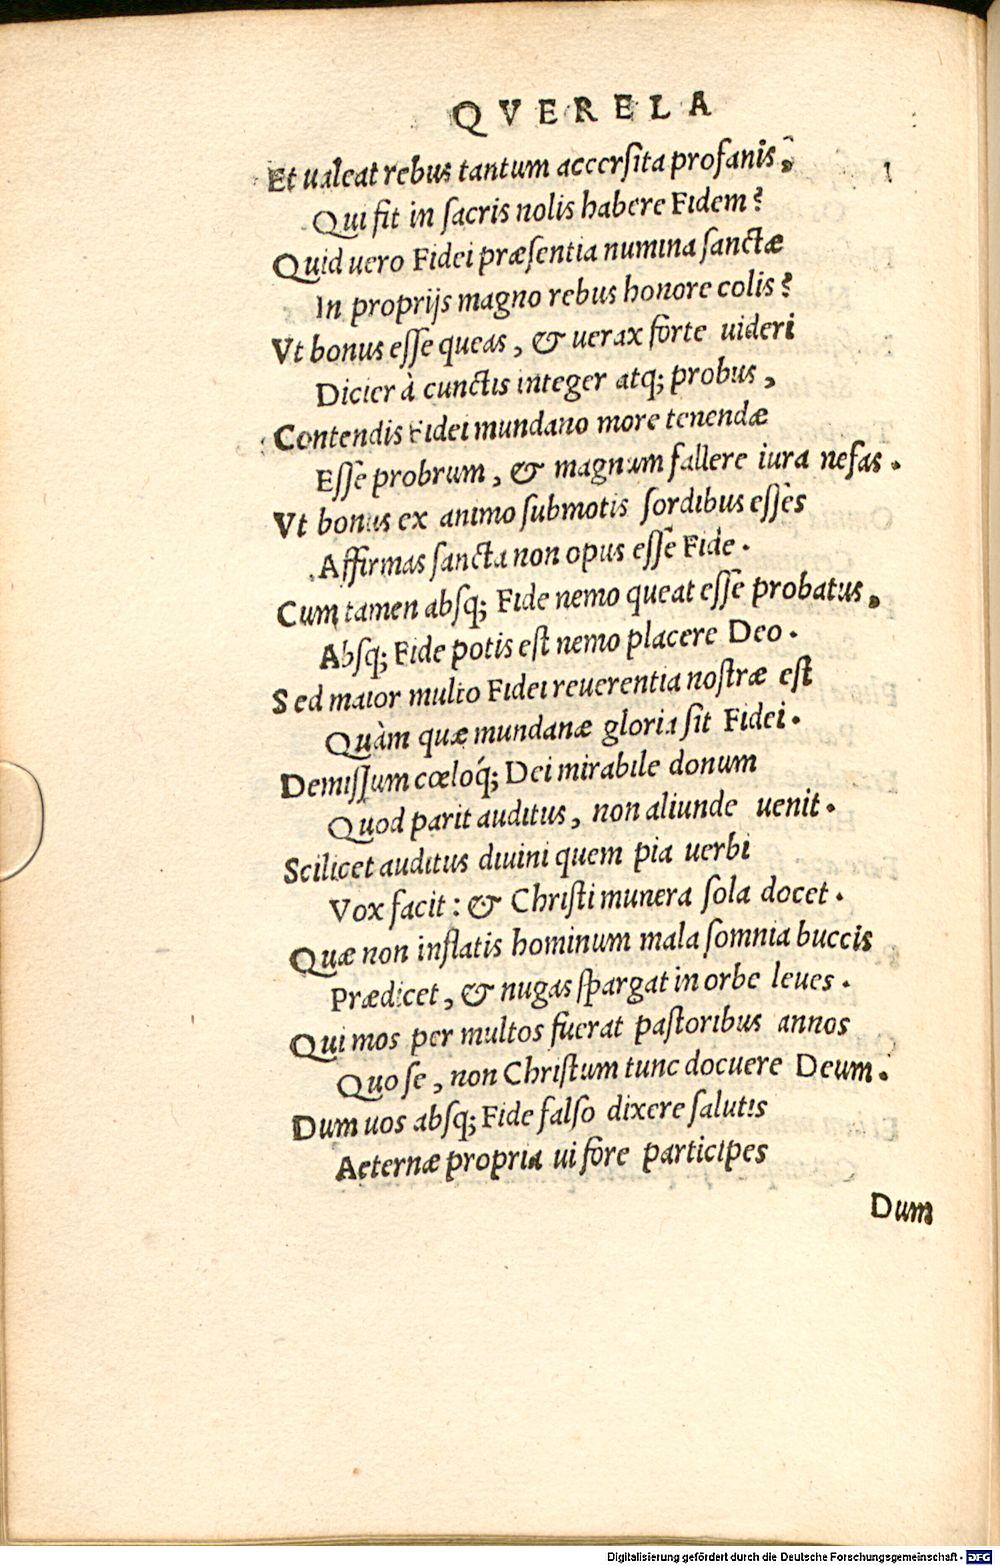 QVERELA
Et ualeat rebus tantum accersita profanis,
Qui fit in ſacris nolis habere Fidem?
Quid uero Fidei præſentia numina ſanctæ
In proprijs magno rebus honore colis?
Vt bonus eſſe queas, & uerax forte uideri
Dicier à cunctis integer atq; probus,
Contendis Fidei mundano more tenendæ
Eſſe probrum, & magnum fallere iura nefas.
Vt bonus ex animo ſubmotis ſordibus eſſes
Affirmas ſancta non opus eſſe Fide.
Cum tamen abſq; Fide nemo queat eſſe probatus,
Abſq; Fide potis eſt nemo placere Deo.
Sed maior multo Fidei reuerentia noſtræ eſt
Quàm quæ mundanæ gloria ſit Fidei.
Demiſſum cœloq́; Dei mirabile donum
Quod parit auditus, non aliunde uenit.
Scilicet auditus diuini quem pia uerbi
Vox facit: & Chriſti munera ſola docet.
Quæ non inflatis hominum mala ſomnia buccis
Prædicet, & nugas ſpargat in orbe leues.
Qui mos per multos fuerat paſtoribus annos
Quo ſe, non Chriſtum tunc docuere Deum.
Dum uos abſq; Fide falſo dixere ſalutis
Aeternæ propria ui fore participes
Dum
Digitalisierung gefördert durch die Deutsche Forschungsgemeinschaft - DFG